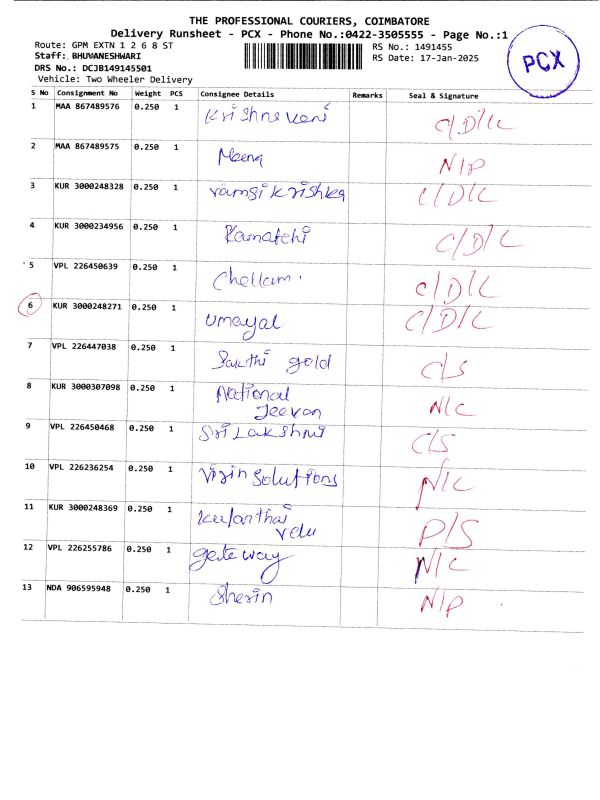 THE PROFESSIONAL COURIERS, COIMBATORE
Delivery Runsheet - PCX - Phone No.:0422-3505555 - Page No.:1
Route: GPM EXTN 1 2 6 8 ST
RS No.: 1491455
Staff: BHUVANESHWARI
RS Date: 17-Jan-2025
DRS No.: DCJB149145501
Vehicle: Two Wheeler Delivery
PCX
S No Consignment No Weight PCS Consignee Details Remarks Seal & Signature
1 MAA 867489576 0.250 1 Krishnaveni C/D/C
2 MAA 867489575 0.250 1 Meena N/P
3 KUR 3000248328 0.250 1 vamsi krishka C/D/C
4 KUR 3000234956 0.250 1 Kamatchi C/D/C
5 VPL 226450639 0.250 1 Chellam. C/D/C
6 KUR 3000248271 0.250 1 Umayal C/D/C
7 VPL 226447038 0.250 1 Sakthi gold C/S
8 KUR 3000307098 0.250 1 National N/C
Jeevan
9 VPL 226450468 0.250 1 Sri Lakshmi C/S
10 VPL 226236254 0.250 1 Solutions N/C
11 KUR 3000248369 0.250 1 P/S
velu
12 VPL 226255786 0.250 1 gateway N/C
13 NDA 906595948 0.250 1 Sherin N/P